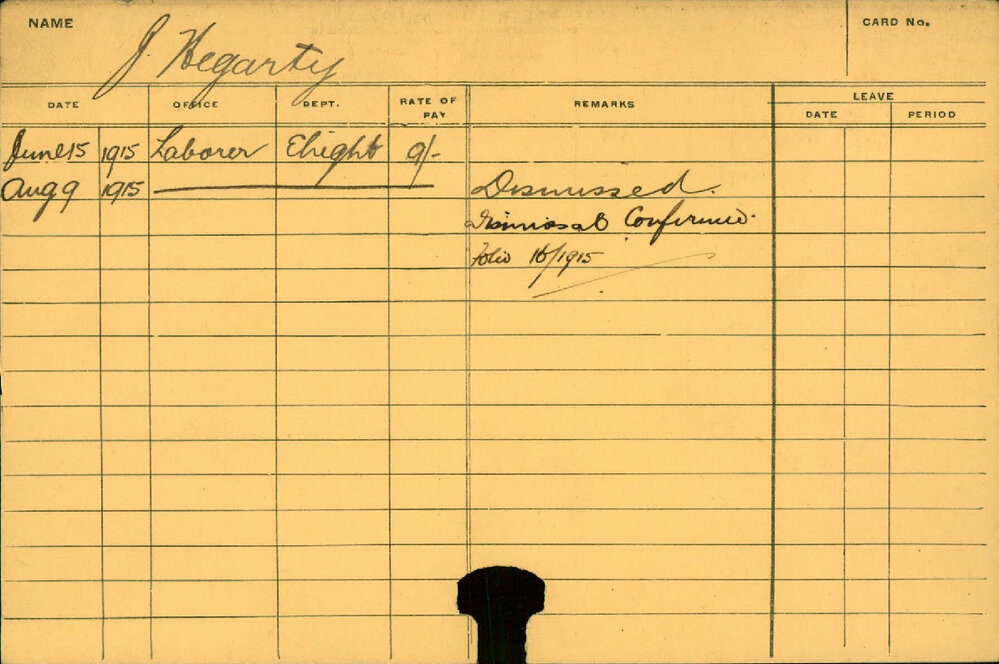 NAME J. Hegarty CARD No.
DATE OFFICE DEPT. RATE OF PAY REMARKS LEAVE
DATE PERIOD
June 15 1915 Laborer Elright 9/-
Aug 9 1915 Dismissed.
Dismissal Confirmed.
Folio 16/1915